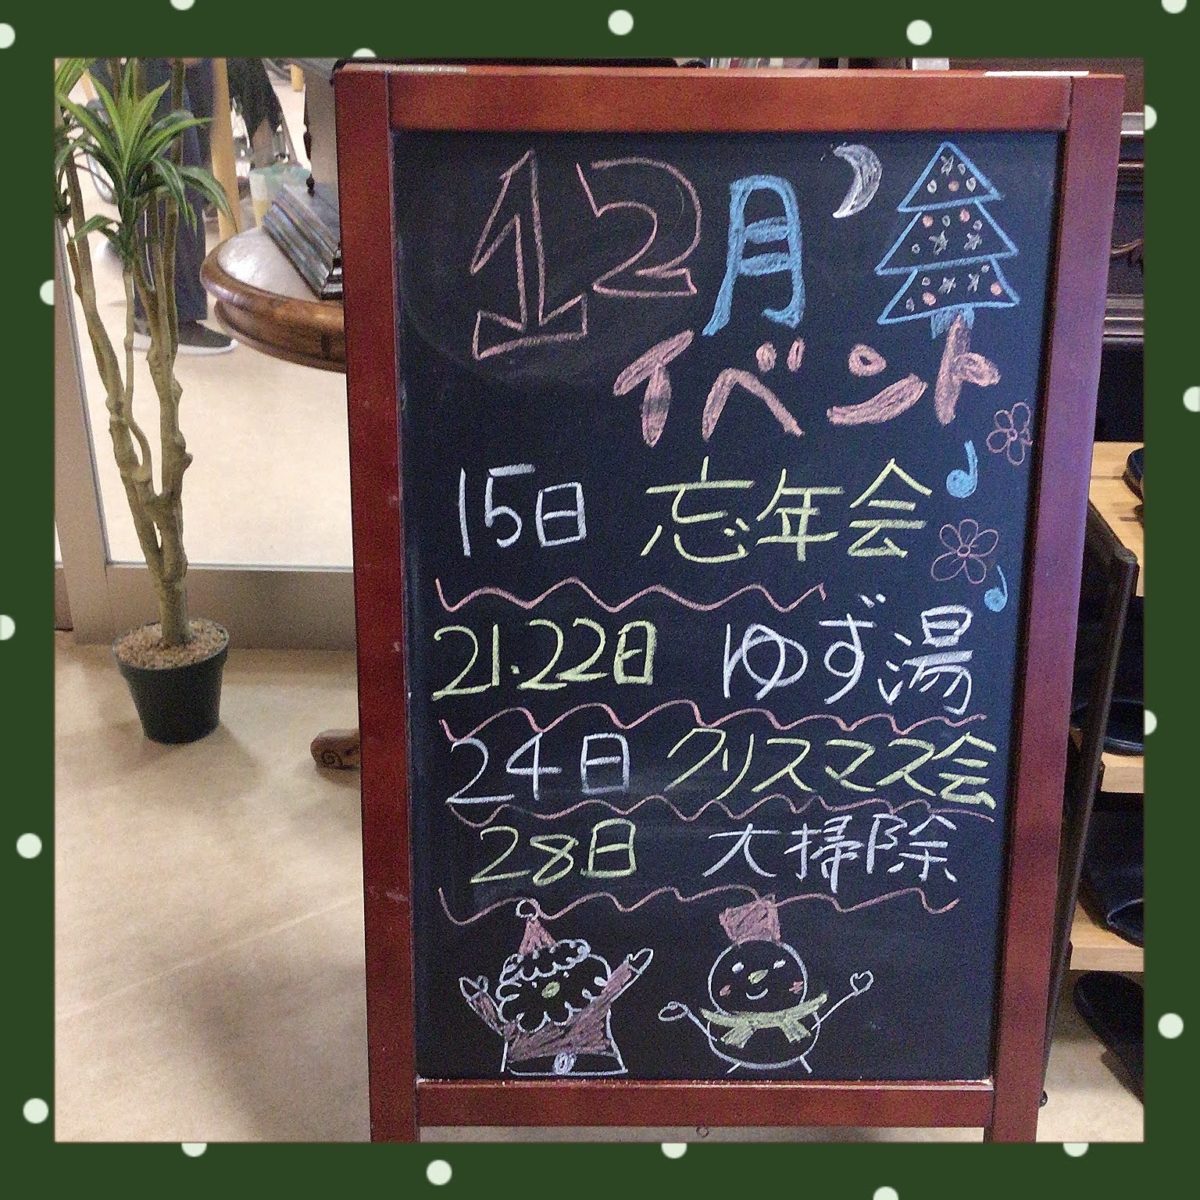 12月
イベント
15日 忘年会
21.22日 ゆず湯
24日 クリスマス会
28日 大掃除